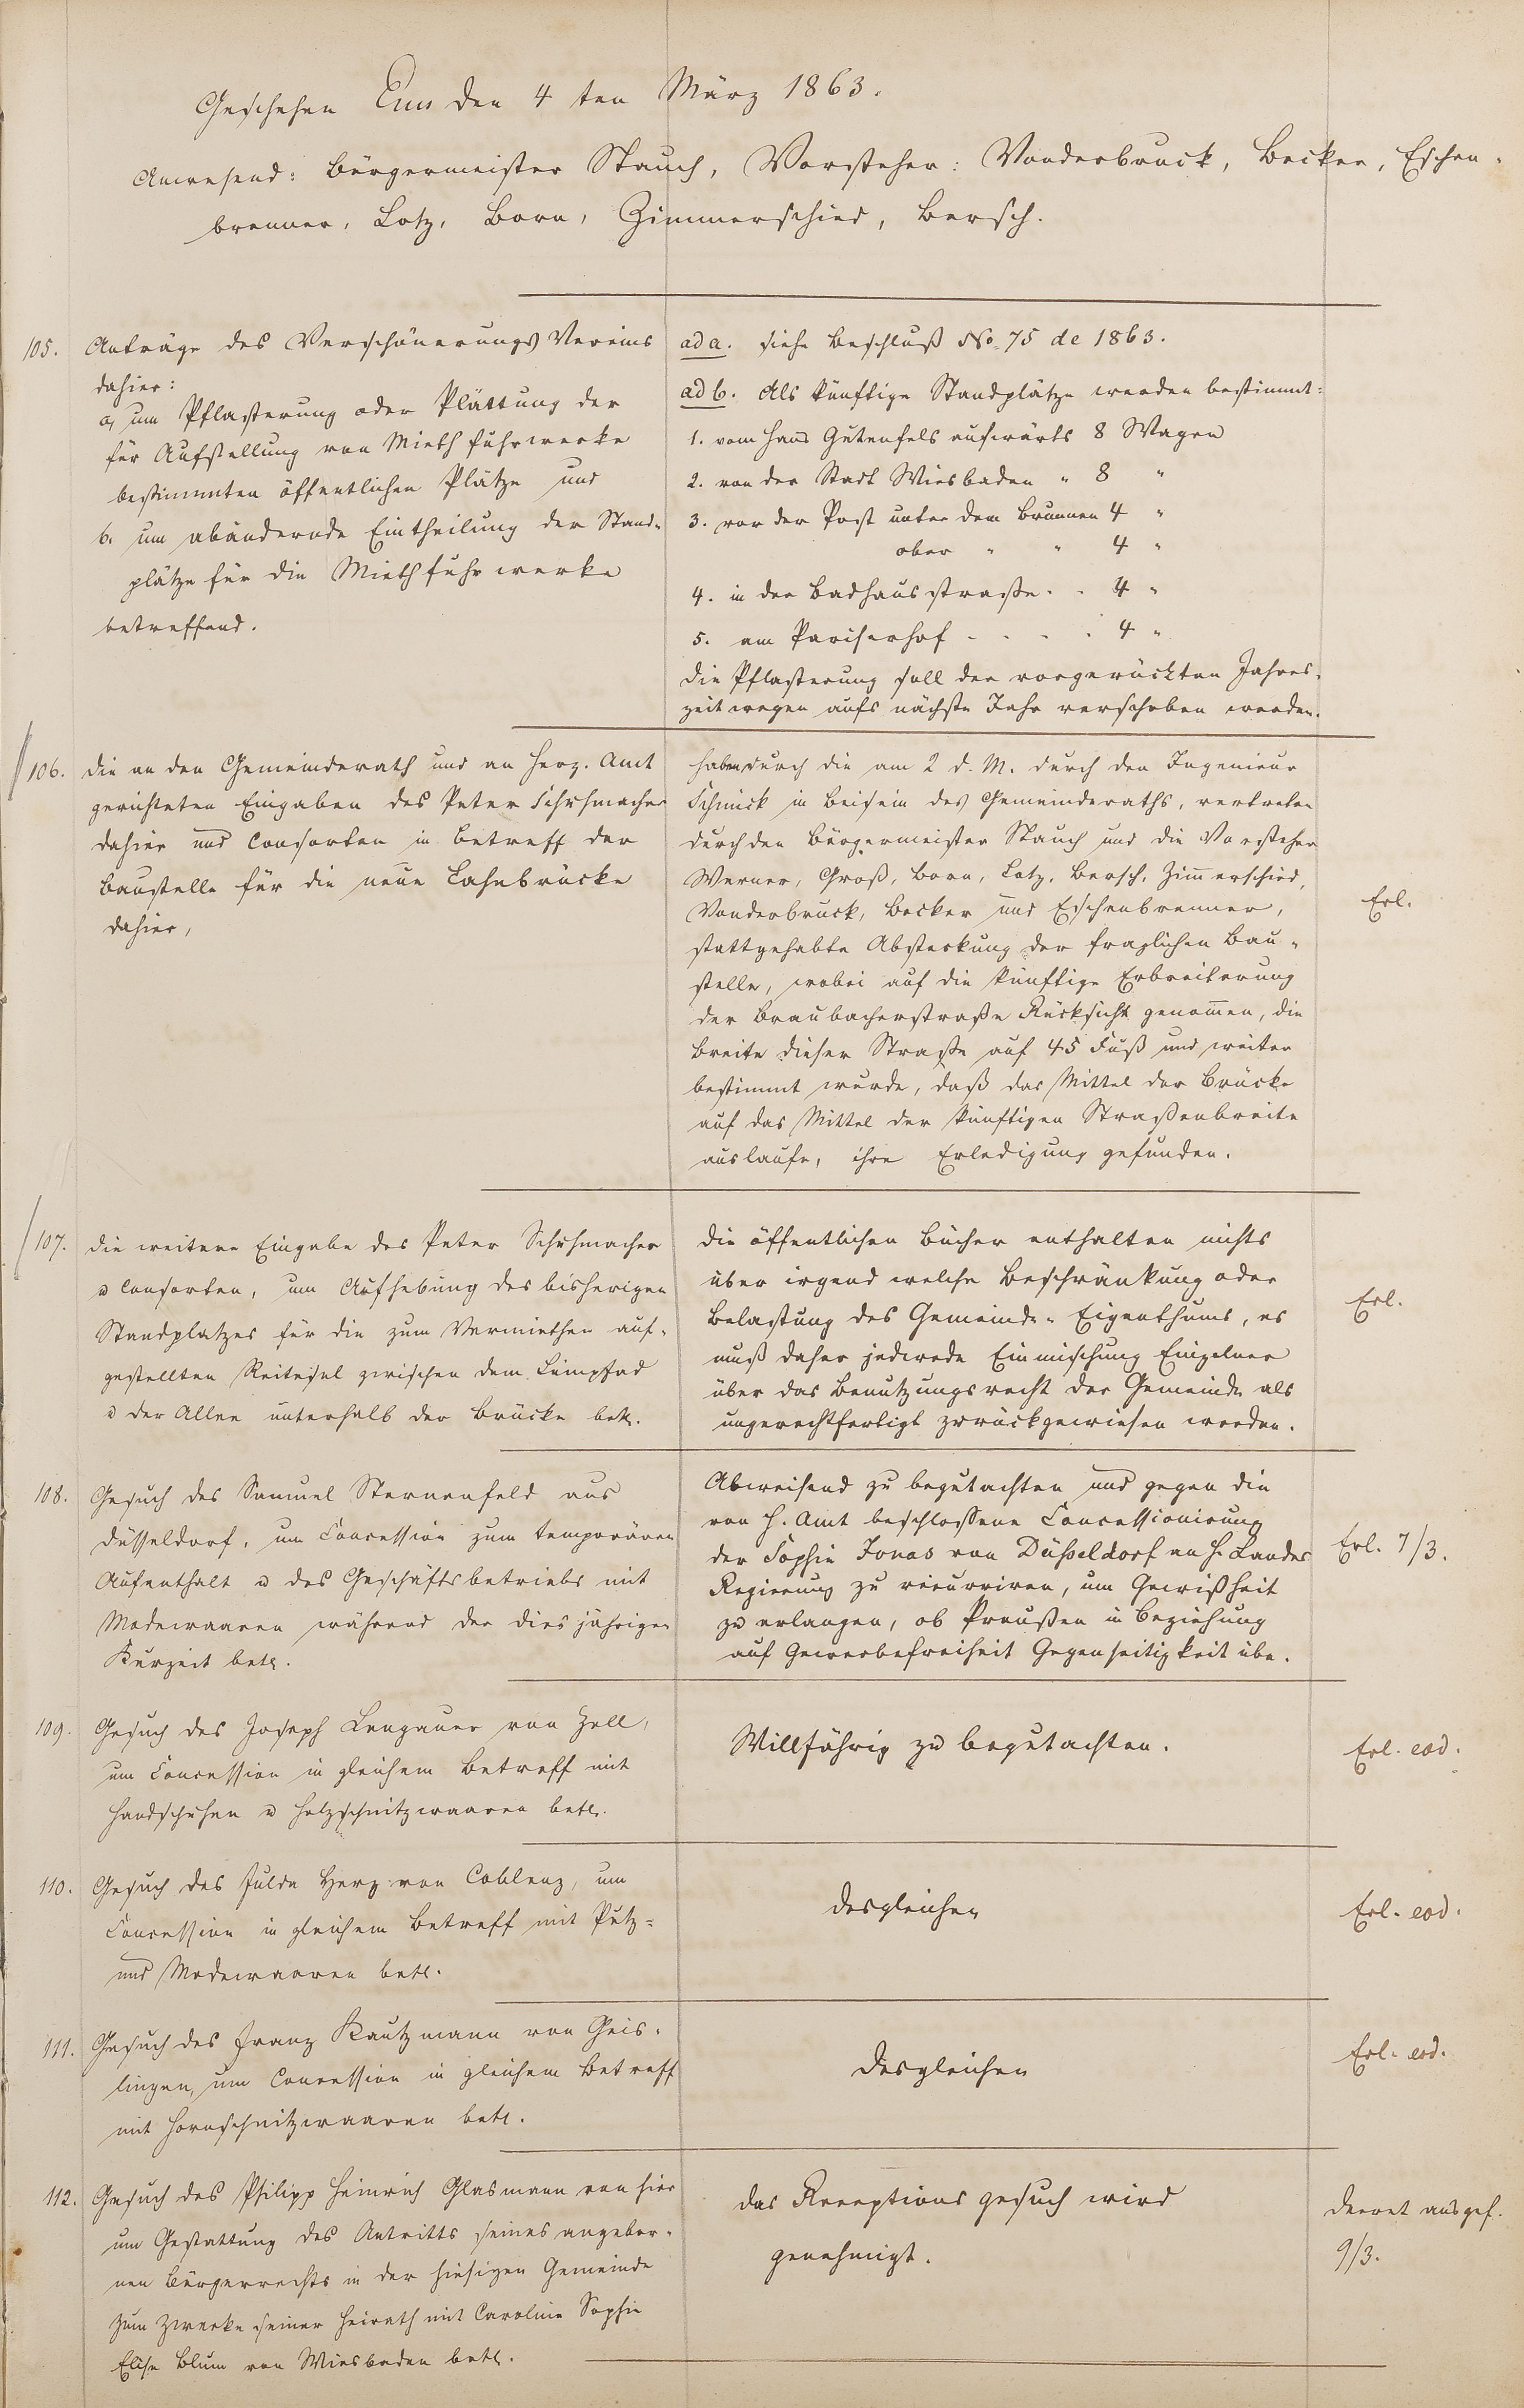 Geschehen Ems den 4 ten März 1863.
Anwesend: Bürgermeister Stauch, Vorsteher: Vonderbruck, Becker, Eschen-
brenner, Lotz, Born, Zimmerschied, Bersch.
105. Anträge des Verschönerungs Vereins
dahier:
a, um Pflasterung oder Plättung der
für Aufstellung von Miethfuhrwerke
bestimmten öffentlichen Plätze und
b. um abändernde Eintheilung der Stand-
plätze für die Miethfuhrwerke
betreffend.
ad a. siehe Beschluß No. 75 de 1863.
ad b. Als künftige Standplätze werden bestimmt:
1. vom Haus Gutenfels aufwärts 8 Wagen
2. von der Stadt Wiesbaden " 8 "
3. vor der Post unter dem Brunnen 4 "
ober " " 4 "
4. in der Badhausstraße . . 4 "
5. am Pariserhof - . . . 4 "
Die Pflasterung soll der vorgerückten Jahres-
zeit wegen aufs nächste Jahr verschoben werden.
106. Die an den Gemeinderath und an Herz. Amt
gerichteten Eingaben des Peter Schuhmacher
dahier und Consorten in Betreff der
Baustelle für die neue Lahnbrücke
dahier,
haben durch die am 2 d. M. durch den Ingenieur
Schmick in Beisein des Gemeinderaths, vertreten
durch den Bürgermeister Stauch und die Vorsteher
Werner, Groß, Born, Lotz, Bersch, Zimmerschied,
Vonderbruck, Becker und Eschenbrenner,
stattgehabte Absteckung der fraglichen Bau-
stelle, wobei auf die künftige Erbreiterung
der Braubacherstraße Rücksicht genommen, die
Breite dieser Straße auf 45 Fuß und weiter
bestimmt wurde, daß das Mittel der Brücke
auf das Mittel der künftigen Straßenbreite
auslaufe, ihre Erledigung gefunden.
Erl.
107. Die weitere Eingabe des Peter Schuhmacher
u Consorten, um Aufhebung des bisherigen
Standplatzes für die zum Vermiethen auf-
gestellten Reitesel zwischen dem Leimpfad
u der Allee unterhalb der Brücke betr.
Die öffentlichen Bücher enthalten nichts
über irgend welche Beschränkung oder
Belastung des Gemeinde-Eigenthums, es
muß daher jedwede Einmischung Einzelner
über das Benutzungsrecht der Gemeinde als
ungerechtfertigt zurückgewiesen werden.
Erl.
108. Gesuch des Samuel Sternenfeld aus
Düsseldorf, um Concession zum temporären
Aufenthalt u des Geschäftsbetriebs mit
Modewaaren während der diesjährigen
Kurzeit betr.
Abweisend zu begutachten und gegen die
von H. Amt beschlossene Concessionirung
der Sophie Jonas von Düsseldorf an H. Landes
Regierung zu recurriren, um Gewißheit
zu erlangen, ob Preußen in Beziehung
auf Gewerbefreiheit Gegenseitigkeit übe.
Erl. 7/3.
109. Gesuch des Joseph Lengauer von Zell,
um Concession in gleichem Betreff mit
Handschuhen u Holzschnitzwaaren betr.
Willfährig zu begutachten.
Erl. eod.
110. Gesuch des Julda Herz von Coblenz, um
Concession in gleichem Betreff mit Putz-
und Modewaaren betr.
desgleichen
Erl. eod.
111. Gesuch des Franz Kautzmann von Geis-
lingen, um Concession in gleichem Betreff
mit Hornschnitzwaaren betr.
desgleichen
Erl. eod.
112. Gesuch des Philipp Heinrich Glasmann von hier
um Gestattung des Antritts seines angebor-
nen Bürgerrechts in der hiesigen Gemeinde
zum Zwecke seiner Heirath mit Caroline Sophie
Elise Blum von Wiesbaden betr.
Das Receptionsgesuch wird
genehmigt.
Decret ausgef.
9/3.